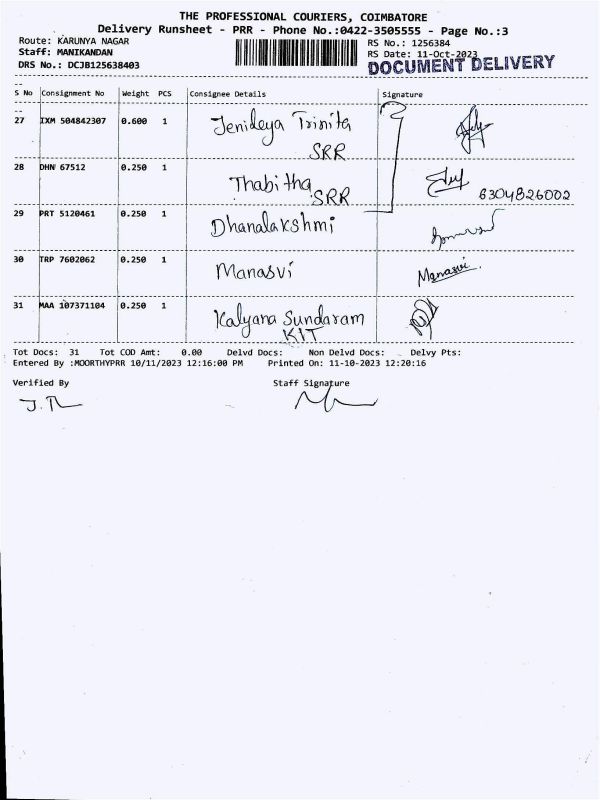 THE PROFESSIONAL COURIERS, COIMBATORE
Delivery Runsheet - PRR - Phone No.:0422-3505555 - Page No.:3
Route: KARUNYA NAGAR
RS No.: 1256384
Staff: MANIKANDAN
RS Date: 11-Oct-2023
DRS No.: DCJB125638403
DOCUMENT DELIVERY
S No Consignment No Weight PCS Consignee Details Signature
27 IXM 504842307 0.600 1 Jenideya Trinita
SRR
28 DHN 67512 0.250 1 Thabitha
SRR 6304826002
29 PRT 5120461 0.250 1 Dhanalakshmi
30 TRP 7602062 0.250 1 Manasvi Manasvi.
31 MAA 107371104 0.250 1 Kalyana Sundaram
KIT
Tot Docs: 31 Tot COD Amt: 0.00 Delvd Docs: Non Delvd Docs: Delvy Pts:
Entered By :MOORTHYPRR 10/11/2023 12:16:00 PM Printed On: 11-10-2023 12:20:16
Verified By Staff Signature